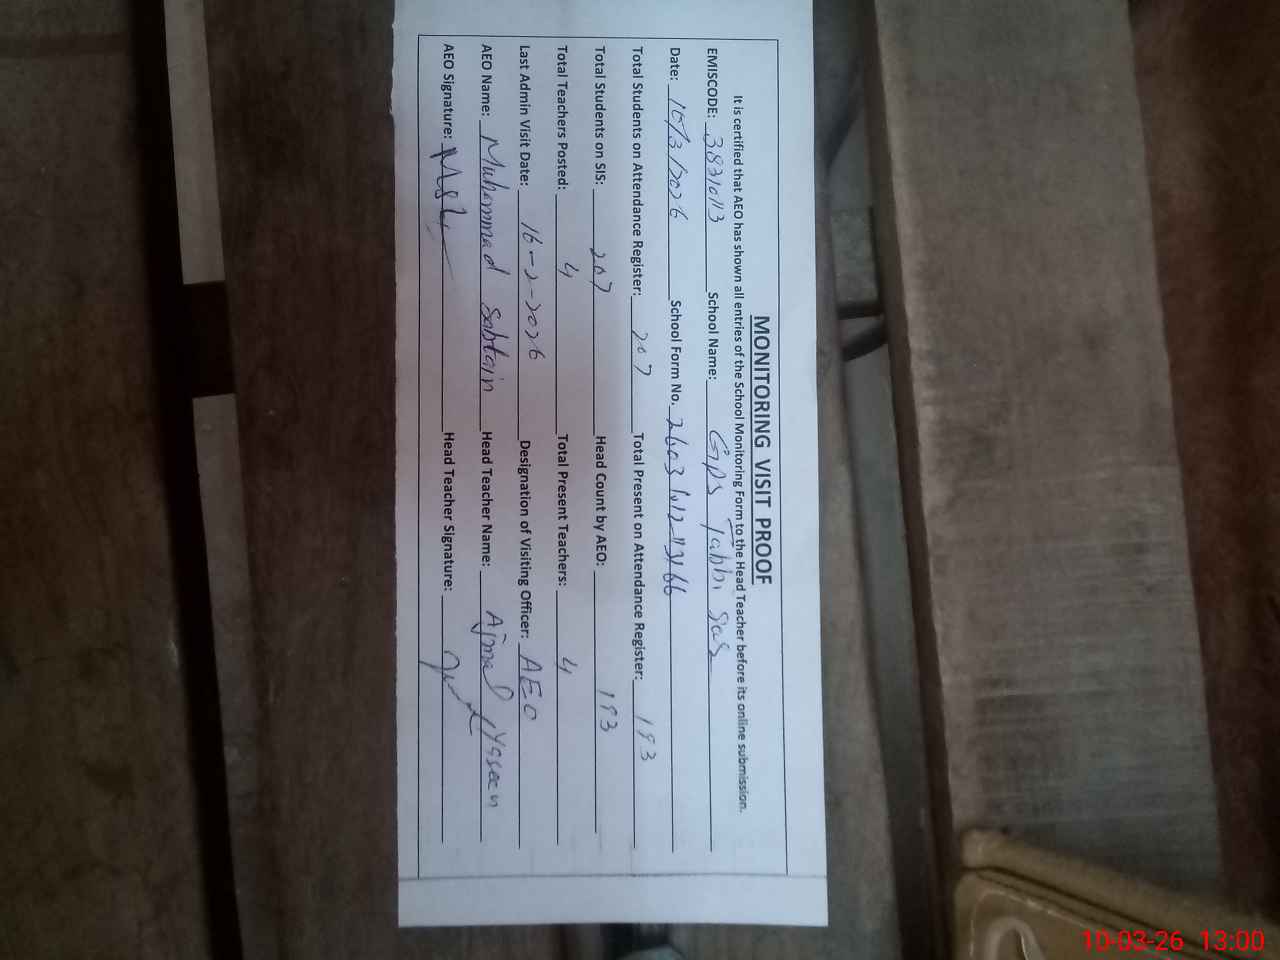 MONITORING VISIT PROOF
It is certified that AEO has shown all entries of the School Monitoring Form to the Head Teacher before its online submission.
EMISCODE: 38310113 School Name: GPS Tabbi
Date: 10/3/2026 School Form No.
Total Students on Attendance Register: 207 Total Present on Attendance Register: 193
Total Students on SIS: 207 Head Count by AEO: 193
Total Teachers Posted: 4 Total Present Teachers: 4
Last Admin Visit Date: 16-2-2026 Designation of Visiting Officer: AEO
AEO Name: Muhammad Sabtain Head Teacher Name: Ajmal Yaseen
AEO Signature: Head Teacher Signature:
10-03-26 13:00